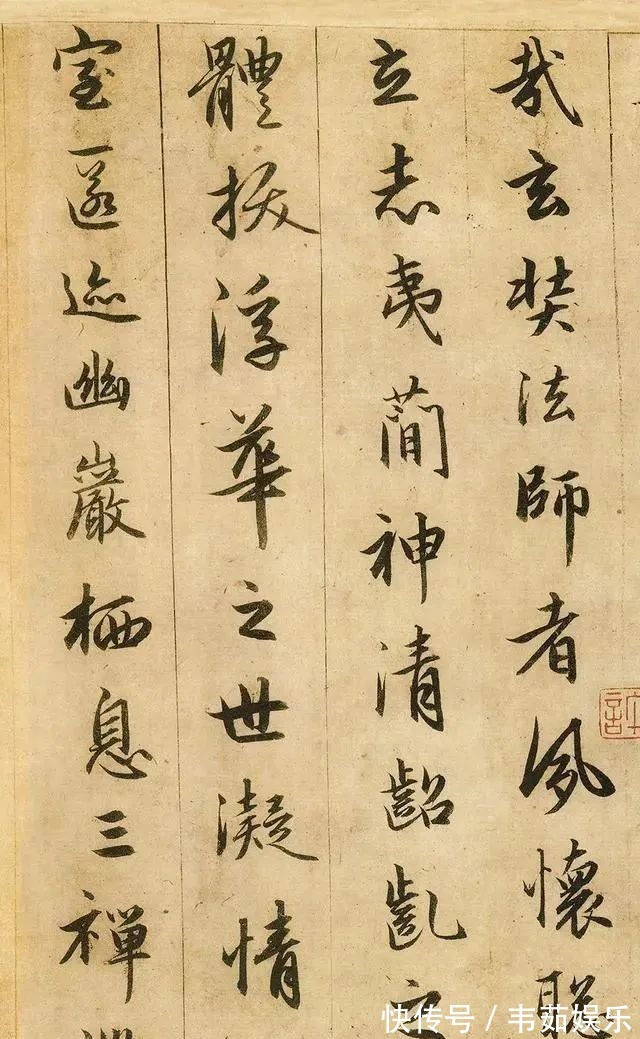 哉玄奘法師者夙懷聰
立志夷蕳神清齠齔之
體拔浮華之世凝情
室匿迹幽巖栖息三禪
快传号/韦茹娱乐